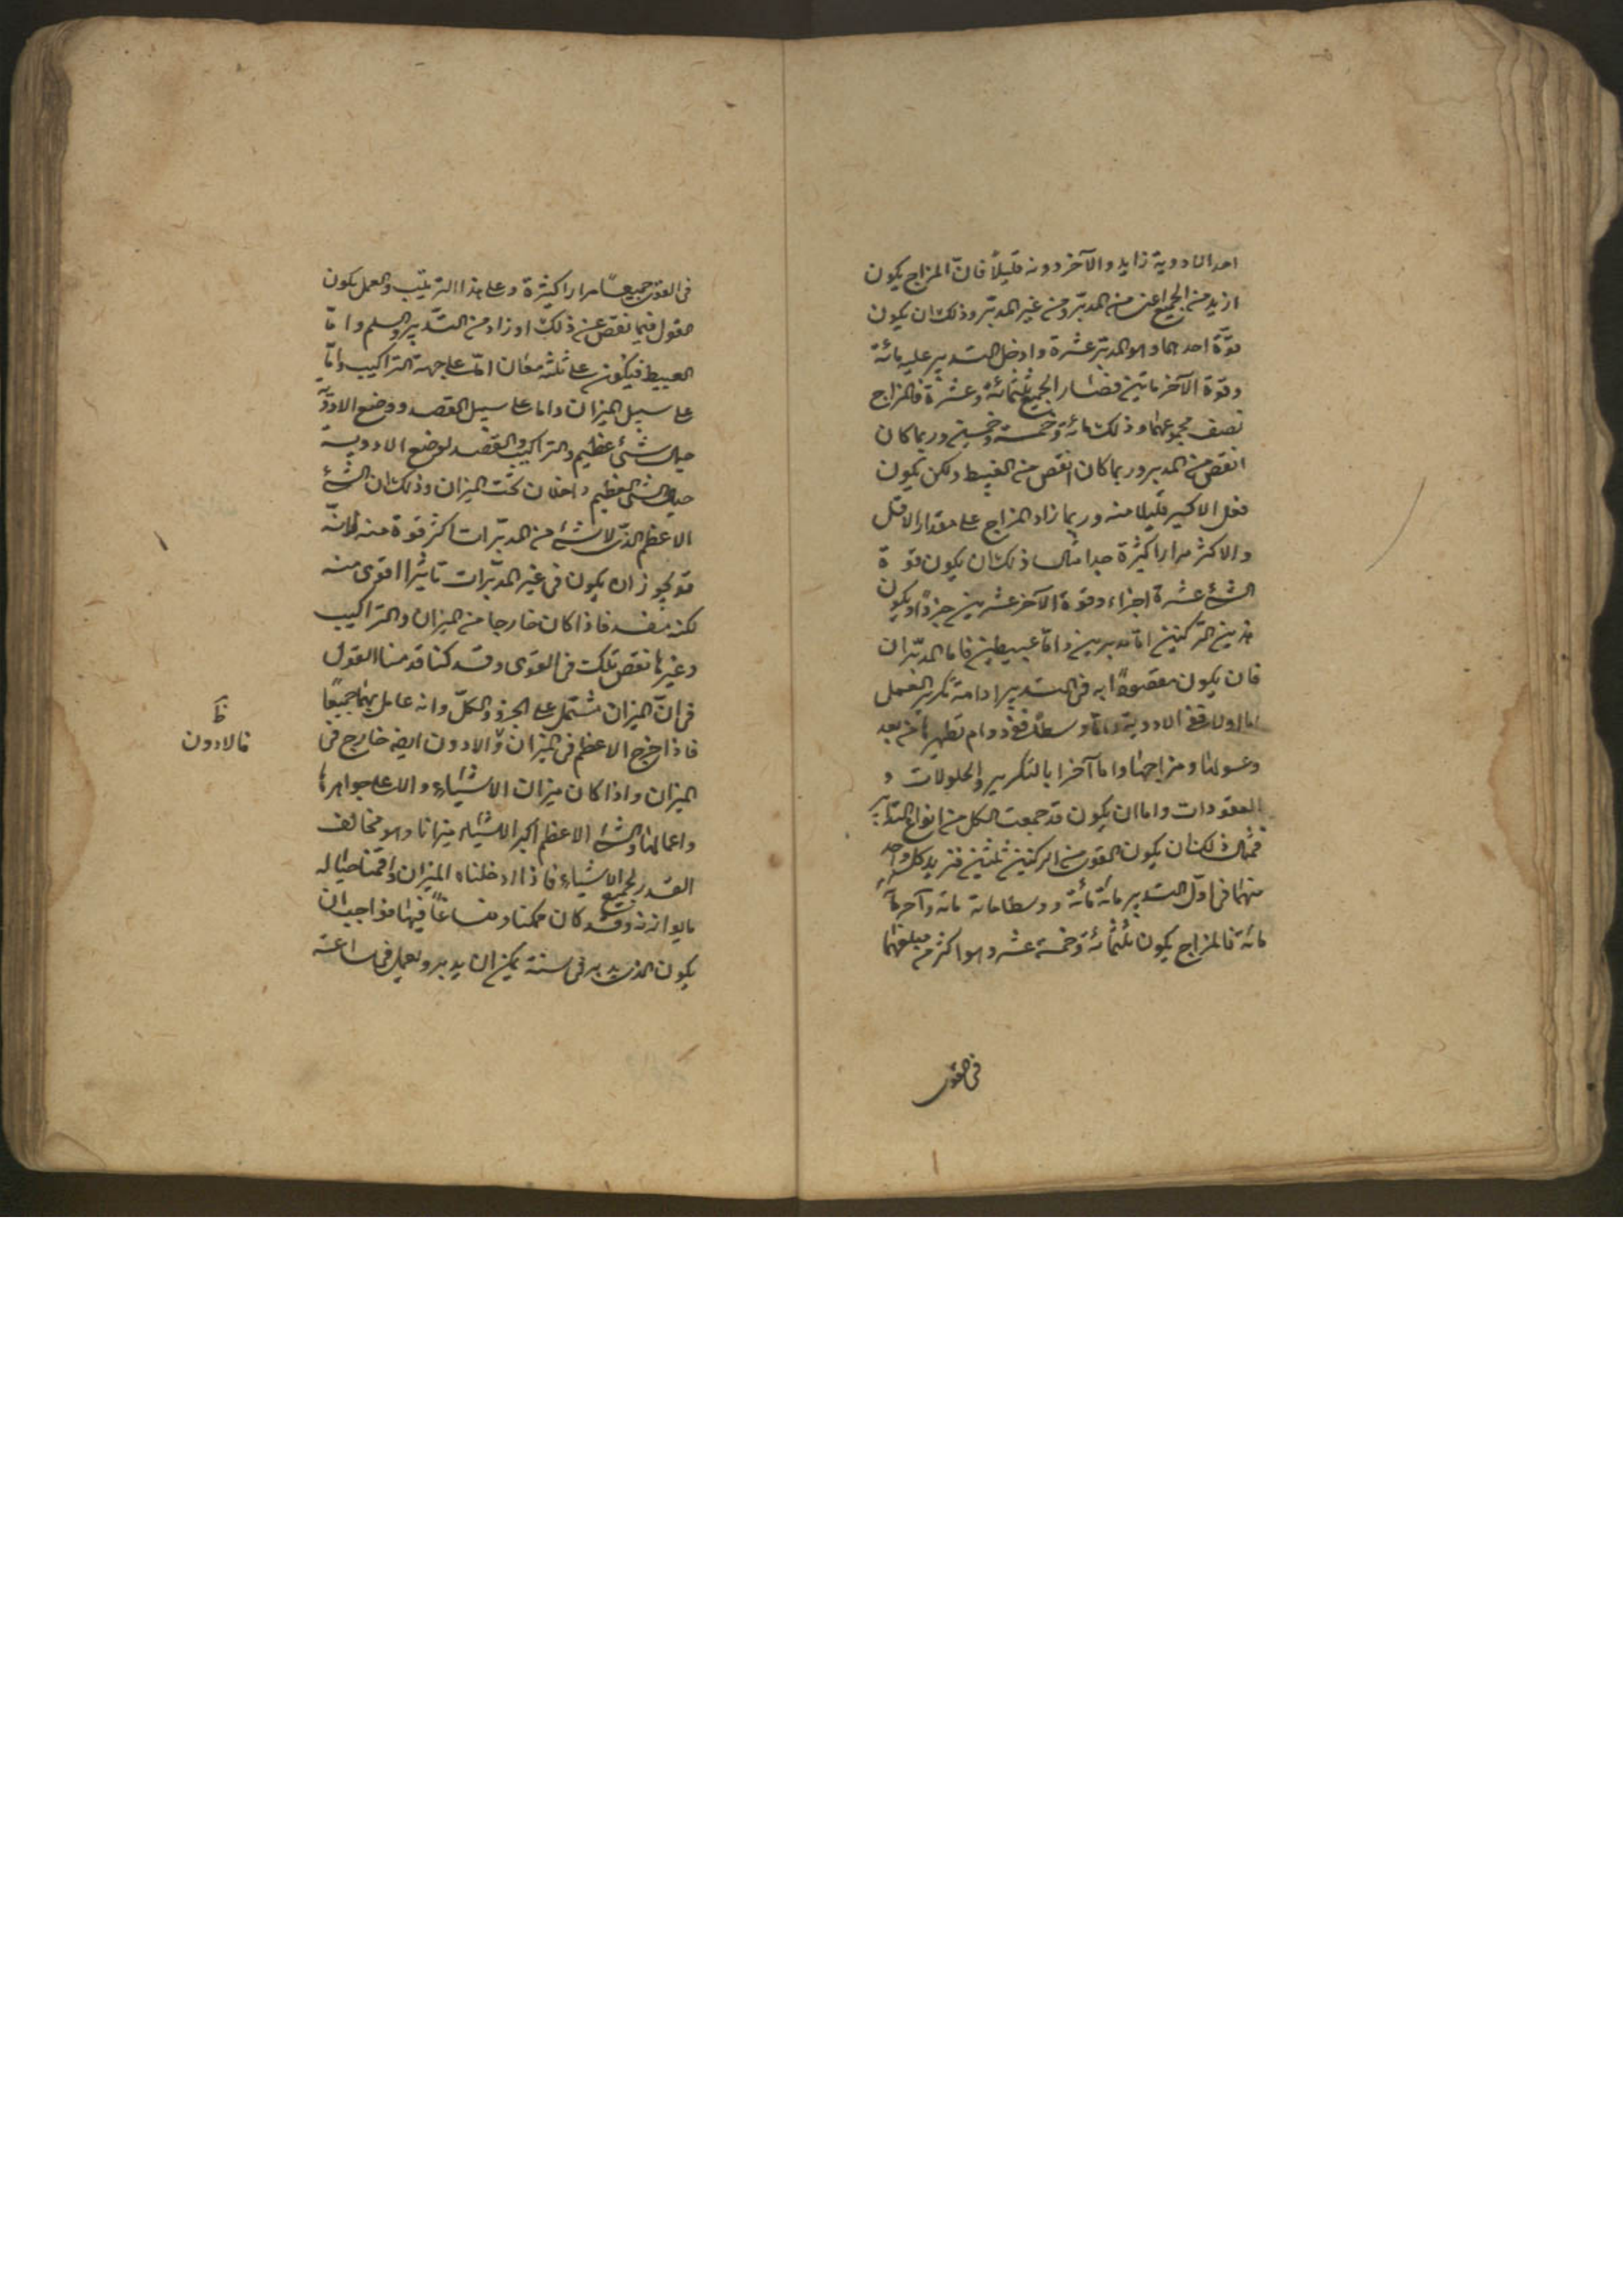 احد الادوية زايد والآخر دونه قليلاً فانّ المزاج يكون
ازيد من الجميع اعنى من المدبّر ومن غير المدبّر وذلك ان يكون
قوّة احدهما وهو المدبّر عشرة وادخل التدبير عليه مائة
وقوة الآخر مايتين فصار الجميع ثلثمائة وعشرة فالمزاج
نصف مجموعهما وذلك مائة وخمسة وخمسين وربما كان
انقص من المدبر وربما كان انقص من العبيط ولكن يكون
فعل الاكسير قليلا منه وربما زاد المزاج على مقدار الاقل
والاكثر مرارا كثيرة جدا مثال ذلك ان يكون قوة
الشئ عشرة اجزاء وقوة الآخر عشرين جزءًا ويكون
هذين الركنين امّا مدبرين وامّا عبيطين فاما المدبّران
فان يكون مقصودًا به فى التدبير ادامة تكرير العمل
اما اولا ففى الادوية وامّا وسطًا ففى دوام تطهيرها من بعد
وغسولها ومزاجها واما آخرا بالتكرير والحلولات و
العقودات واما ان يكون قد جمعت الكل من انواع التدابير
فمثال ذلك ان يكون القوى من الركنين ثلثين فنزيد كل واحد
منهما فى اوّل التدبير مائة مائة ووسطا مائة مائة وآخرًا
مائة فالمزاج يكون ثلثمائة وخمسة عشر وهو اكثر من مبلغهما
فى القوى
فى القوى جميعًا مرارا كثيرة وعلى هذا الترتيب والعمل يكون
القول فيما نقص عن ذلك او زاد من التدبير والسلم وامّا
العبيط فيكون على ثلثة معان امّا على جهة التراكيب وامّا
على سبيل الميزان واما على سبيل القصد ووضع الادوية
حيال شئ عظيم والتراكيب والقصد لوضع الادوية
حيال الشئ العظيم داخلان تحت الميزان وذلك ان الشئ
الاعظم الذى لا شئ من المدبّرات اكثر قوة منه فانّه
قد يجوز ان يكون فى غير المدبّرات تاثيرا اقوى منه
لكنه مفسد فاذا كان خارجا من الميزان والتراكيب
وغيرها نقص تلك فى القوى وقد كنا قدمنا القول
فى انّ الميزان مشتمل على الجزؤ والكلّ وانه عامل بهما جميعًا
فاذا خرج الاعظم فى الميزان والادون ايضه خارج فى
الميزان واذا كان ميزان الاشياء والاعلى جواهرها
واعمالها والشئ الاعظم اكبر الاشياء ميزانا وهو مخالف
القدر لجميع الاشياء فاذا ادخلناه الميزان واقمنا حياله
مايوازنه وقد كان ممكنا ومنساغًا فيها فواجب ان
يكون الذى يدبر فى سنة يمكن ان يدبر ويعمل فى ساعة
ظ
فالادون